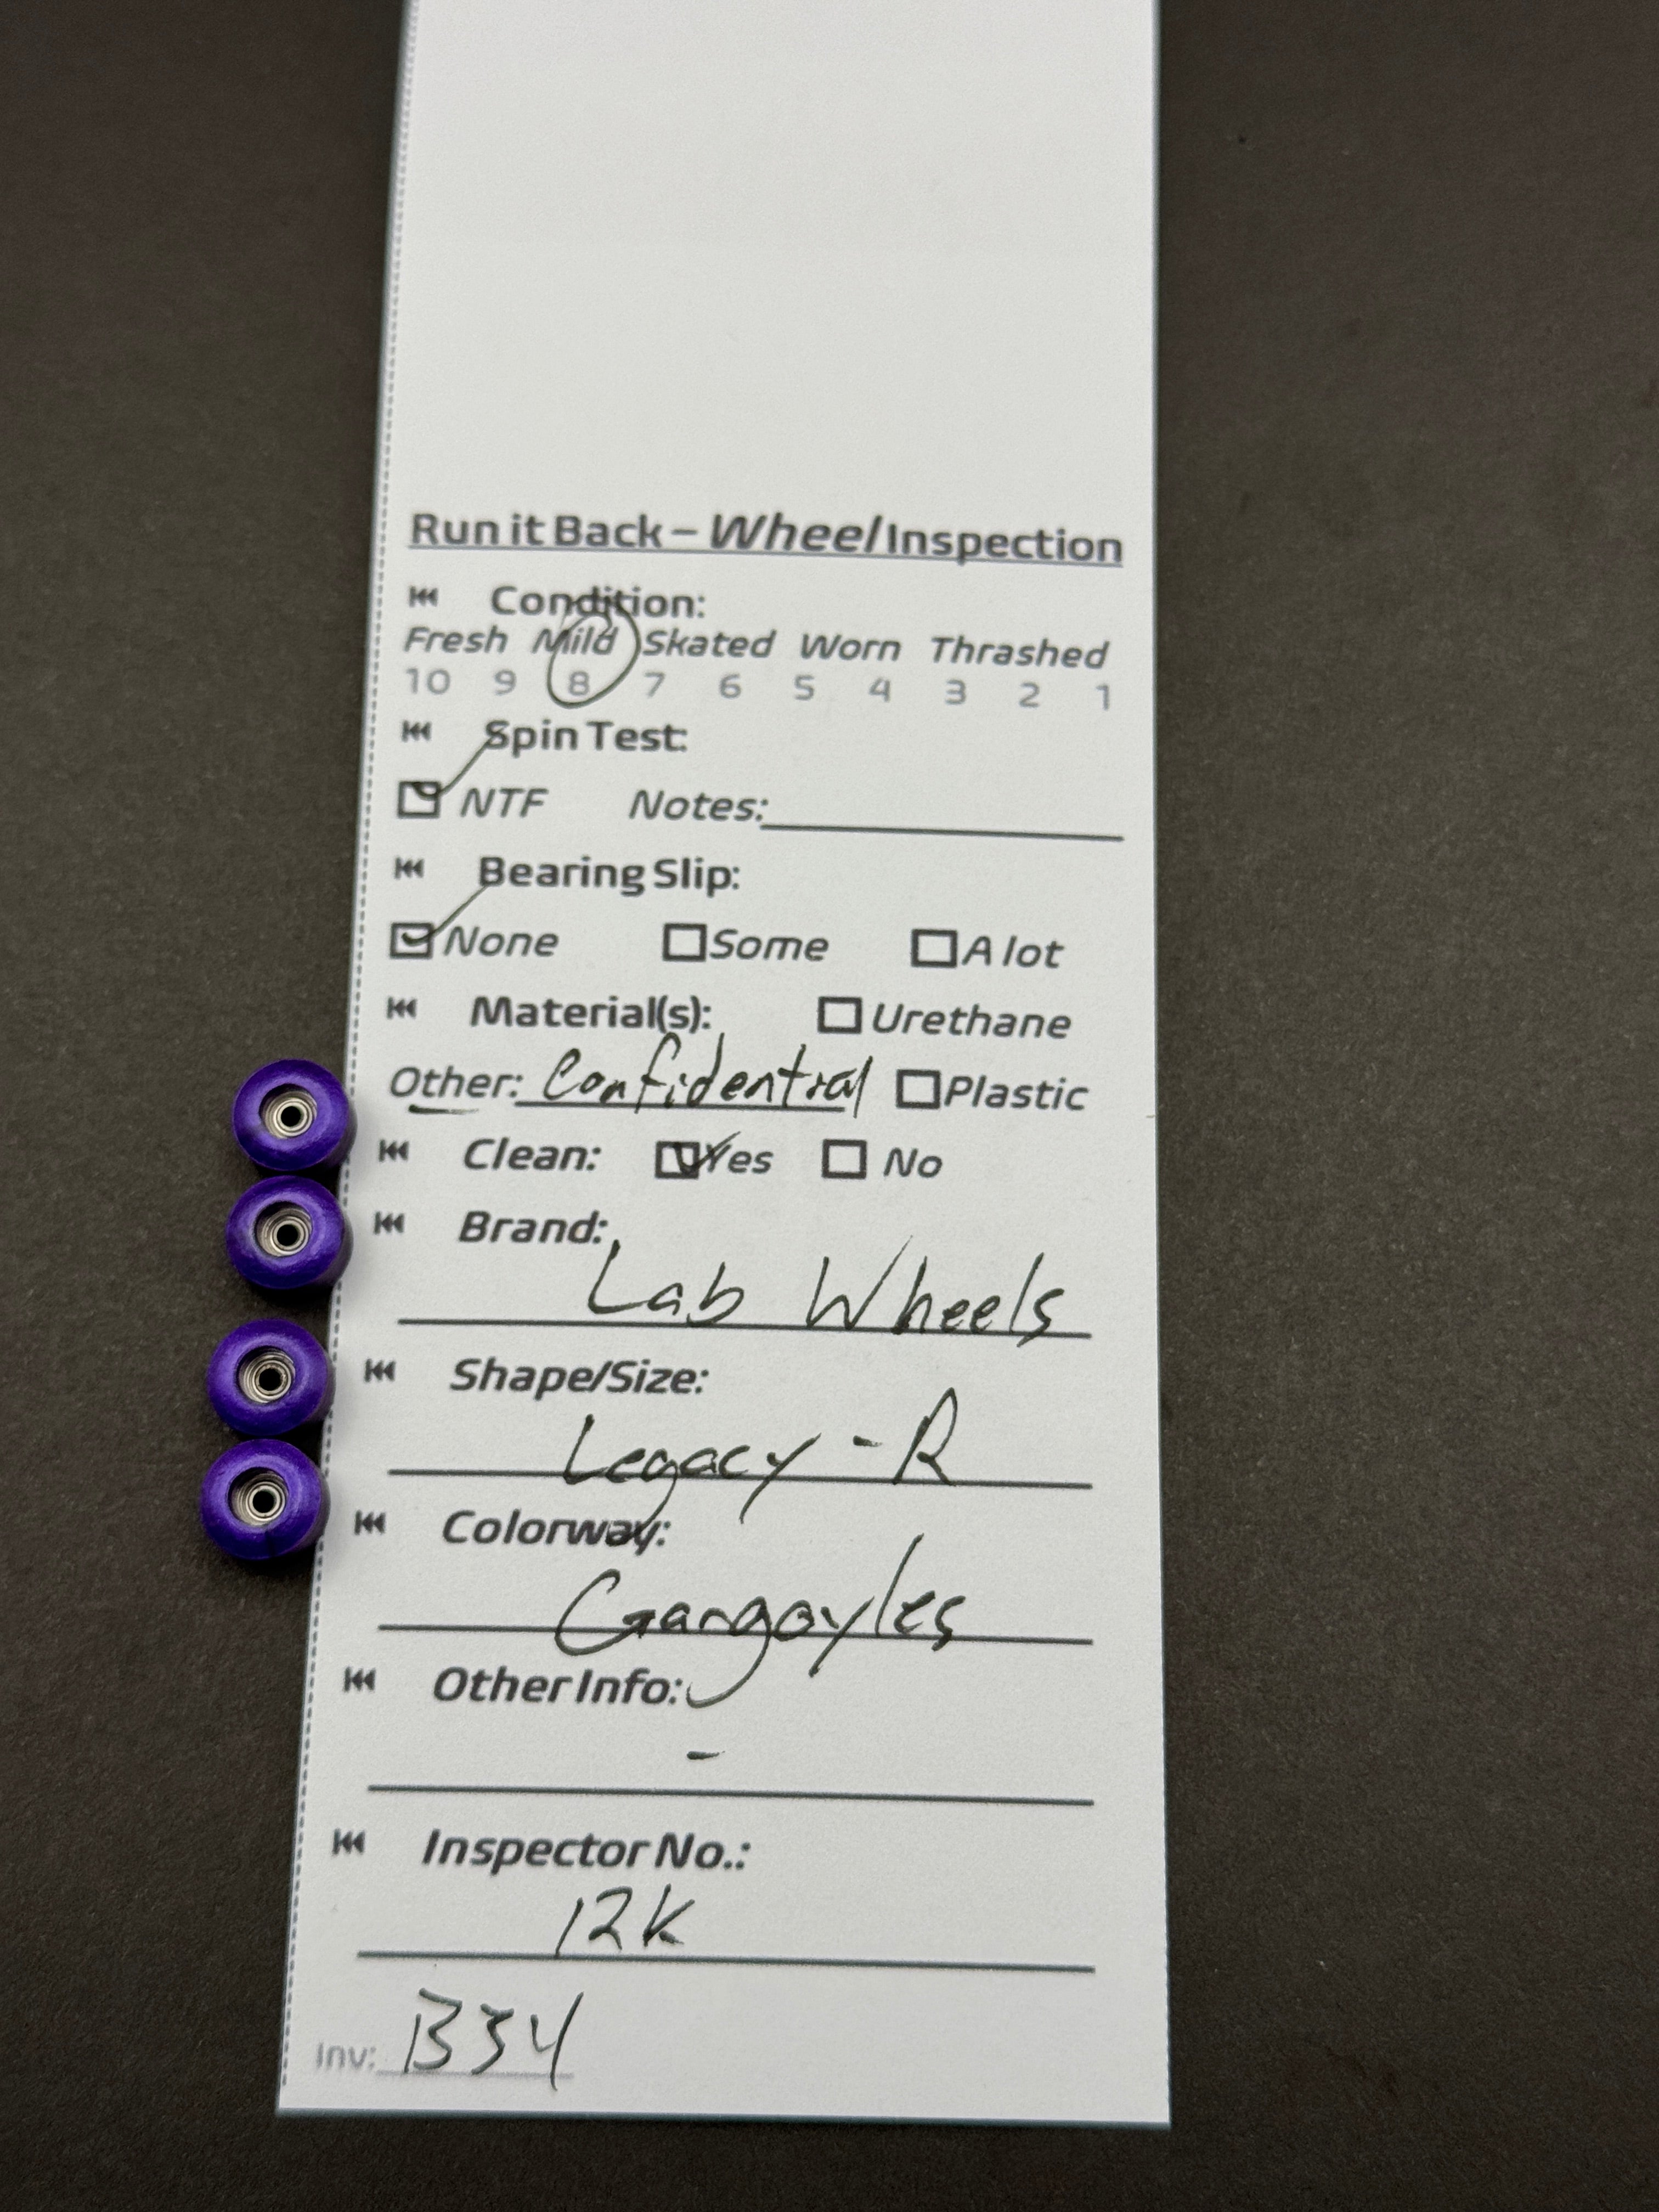 Run it Back – Wheel Inspection
Condition:
Fresh Mild Skated Worn Thrashed
10 9 8 7 6 5 4 3 2 1
Spin Test:
NTF Notes:
Bearing Slip:
None Some A lot
Material(s): Urethane
Other: Confidential Plastic
Clean: Yes No
Brand:
Lab Wheels
Shape/Size:
Legacy - R
Colorway:
Gargoyles
Other Info:
-
Inspector No.:
12K
Inv: B34